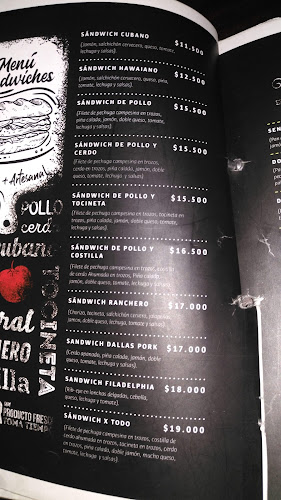 Menú
Sandwiches
+ Artesanal
POLLO
cerd
cubano
TOCINETA
PRODUCTO FRES
TOMA TIEMP
SÁNDWICH CUBANO $11.500
(Jamón, salchichón cervecero, queso, tomate,
lechuga y salsas).
SÁNDWICH HAWAIANO $12.500
(Jamón, salchichón cervecero, queso, piña,
tomate, lechuga y salsas).
SÁNDWICH DE POLLO $15.500
(Filete de pechuga campesina en trozos,
piña calada, jamón, doble queso, tomate,
lechuga y salsas).
SÁNDWICH DE POLLO Y
CERDO $15.500
(Filete de pechuga campesina en trozos,
cerdo en trozos, piña calada, jamón, doble
queso, tomate, lechuga y salsas).
SÁNDWICH DE POLLO Y
TOCINETA $15.500
(Filete de pechuga campesina en trozos, tocineta en
trozos, piña calada, jamón, doble queso, tomate,
lechuga y salsas).
SÁNDWICH DE POLLO Y
COSTILLA $16.500
(Filete de pechuga campesina en trozos,
de cerdo Ahumada en trozos, Piña calada,
jamón, doble queso, tomate, lechuga y salsas).
SÁNDWICH RANCHERO $17.000
(Chorizo, tocineta, salchichón cervecero,
jamón, doble queso, lechuga, tomate, salsas).
SANDWICH DALLAS PORK $17.000
(Cerdo apanado, piña calada, jamón, doble
queso, tomate, lechuga y salsas).
SANDWICH FILADELPHIA $18.000
(Rib-eye en lonchas delgadas, cebolla,
queso, lechuga y tomate).
SÁNDWICH X TODO $19.000
(Filete de pechuga campesina en trozos, costilla de
cerdo ahumada en trozos, tocineta en trozos, cerdo
en trozos, piña calada, jamón, doble queso, mucho queso,
tomate, lechuga y salsas).